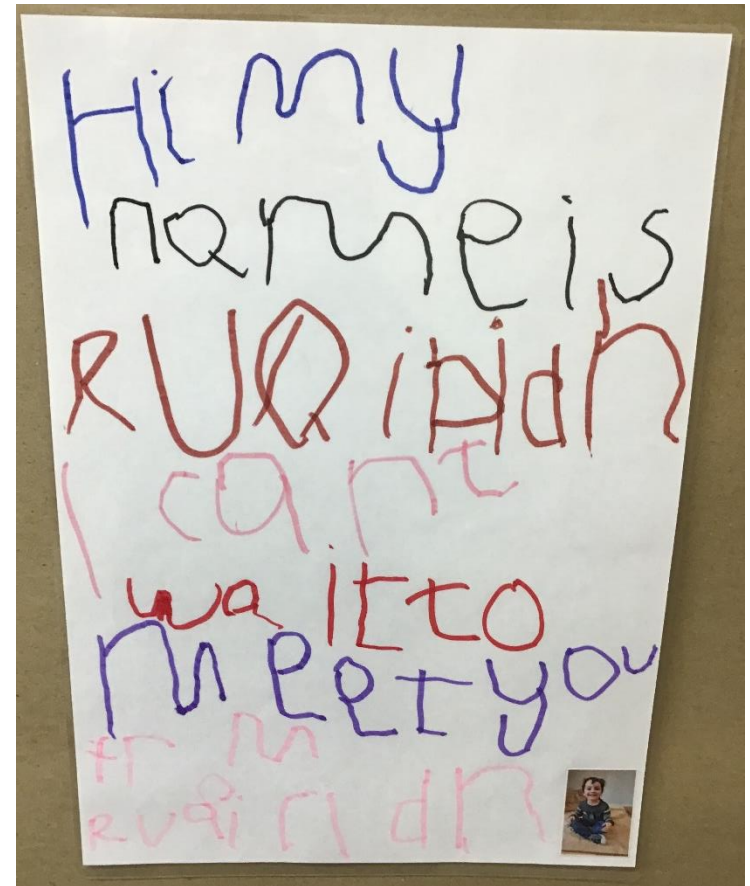 Hi my
name is
RUairidh
I cant
wait to
meet you
from
Ruairidh